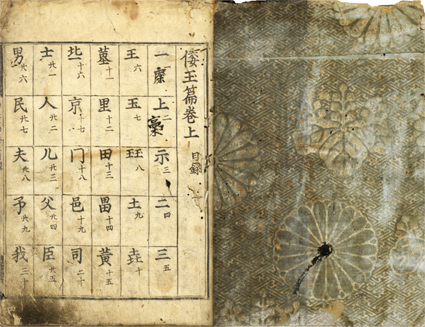 倭玉篇卷上 目録
一 上二 示三 二四 三五
王六 玉七 玨八 土九 垚十
十一 里十二 田十三 畕十四 黃十五
十六 京十七 十八 邑十九 司二十
士廿一 人廿二 儿廿三 父廿四 臣廿五
男廿六 民廿七 夫廿八 予廿九 我三十